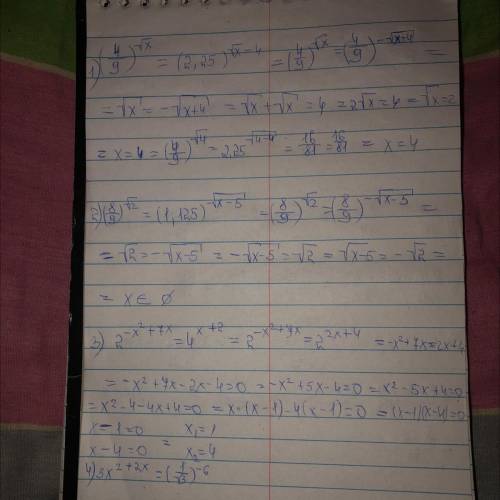 1) (4/9)^√x = (2,25)^√x-4 = (4/9)^√x = (4/9)^-√x+4 =
= √x = -√x+4 = √x + √x = 4 = 2√x = 4 = √x = 2
= x = 4 = (4/9)^√4 = 2,25^√4-4 = 16/81 = 16/81 = x = 4
2) (8/9)^√2 = (1,125)^-√x-5 = (8/9)^√2 = (8/9)^-√x-5 =
= √2 = -√x-5 = -√x-5 = √2 = √x-5 = -√2 =
= x ∈ ∅
3) 2^-x²+7x = 4^x+2 = 2^-x²+7x = 2^2x+4 = -x²+7x=2x+4
= -x²+7x-2x-4=0 = -x²+5x-4=0 = x²-5x+4=0
= x²-4-4x+4=0 = x·(x-1)-4(x-1)=0 = (x-1)(x-4)=0
x-1=0 = x₁=1
x-4=0 x₂=4
4) 3x^2+2x = (1/√3)^-6